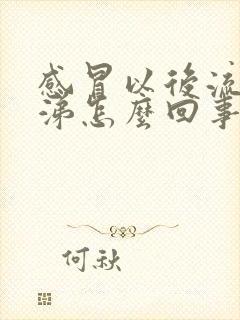 感冒以後流
涕怎麼回事
何秋